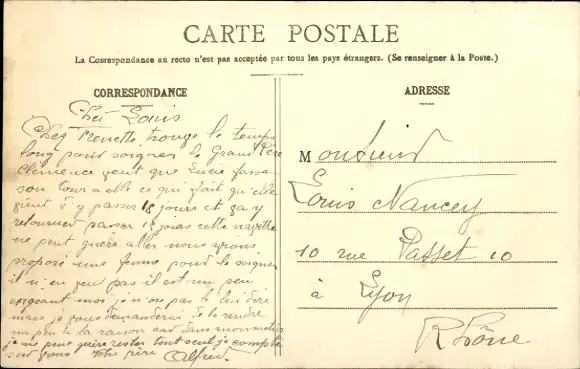 CARTE POSTALE
La Correspondance au recto n'est pas acceptée par tous les pays étrangers. (Se renseigner à la Poste.)
CORRESPONDANCE
Cher Louis
Chez Frenette trouge le temps
long pour soigner le Grand Père
Clémence veut que Lucie fasse
son tour a elle ce qui fait qu'elle
vient d'y passer 18 jours et ça y
retourner passer 15 jours cette navette
ne peut guère aller nous avons
proposé une femme pour le soigner
il n'en veu pas il est un peu
exigeant moi je n'ose pas te lui dire
mais je vous demanderai de le rendre
un peu a la raison car sans
je ne peut guère rester tout seul je compte
sur vous Votre frère Alfred
ADRESSE
Monsieur
Louis Nancey
10 rue Passet 10
à Lyon
Rhône